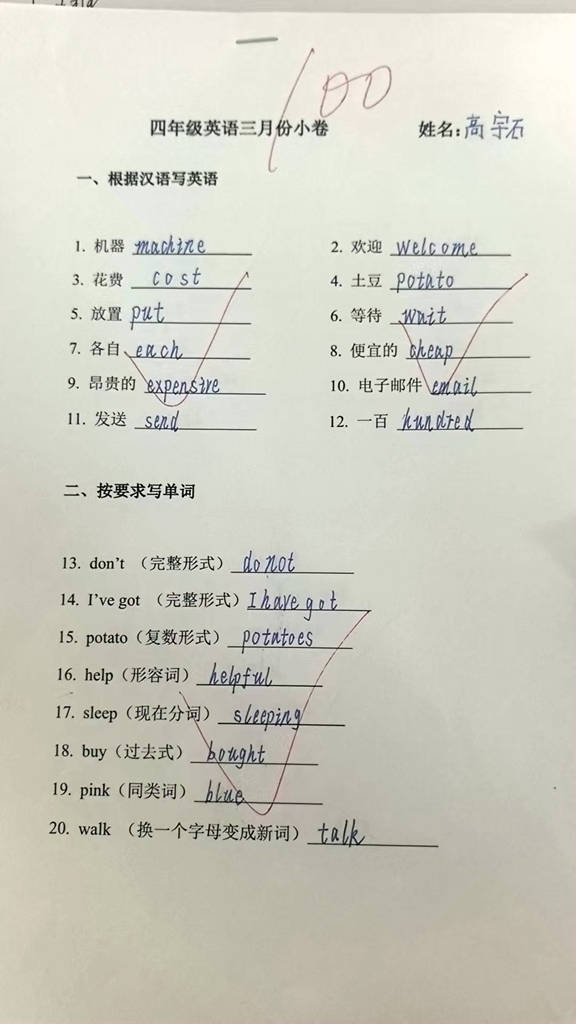 100
四年级英语三月份小卷 姓名:高宇石
一、根据汉语写英语
1. 机器 machine 2. 欢迎 welcome
3. 花费 cost 4. 土豆 potato
5. 放置 put 6. 等待 wait
7. 各自 each 8. 便宜的 cheap
9. 昂贵的 expensive 10. 电子邮件 email
11. 发送 send 12. 一百 hundred
二、按要求写单词
13. don't （完整形式）do not
14. I've got （完整形式）I have got
15. potato（复数形式）potatoes
16. help（形容词）helpful
17. sleep（现在分词）sleeping
18. buy（过去式）bought
19. pink（同类词）blue
20. walk （换一个字母变成新词）talk